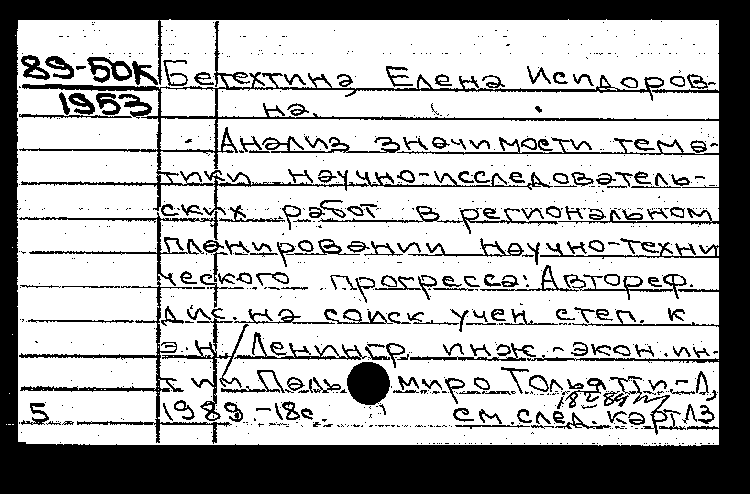 89-50к Бетехтина, Елена Исидоров-
1953 на.
Анализ значимости тема-
тики научно-исследователь-
ских работ в региональном
планировании научно-техни
ческого прогресса: Автореф.
дис. на соиск. учен. степ. к.
э.н. / Ленингр. инж.-экон. ин-
т им. Паль миро Тольятти.-Л,
5 1989 -18с. см. след. карт